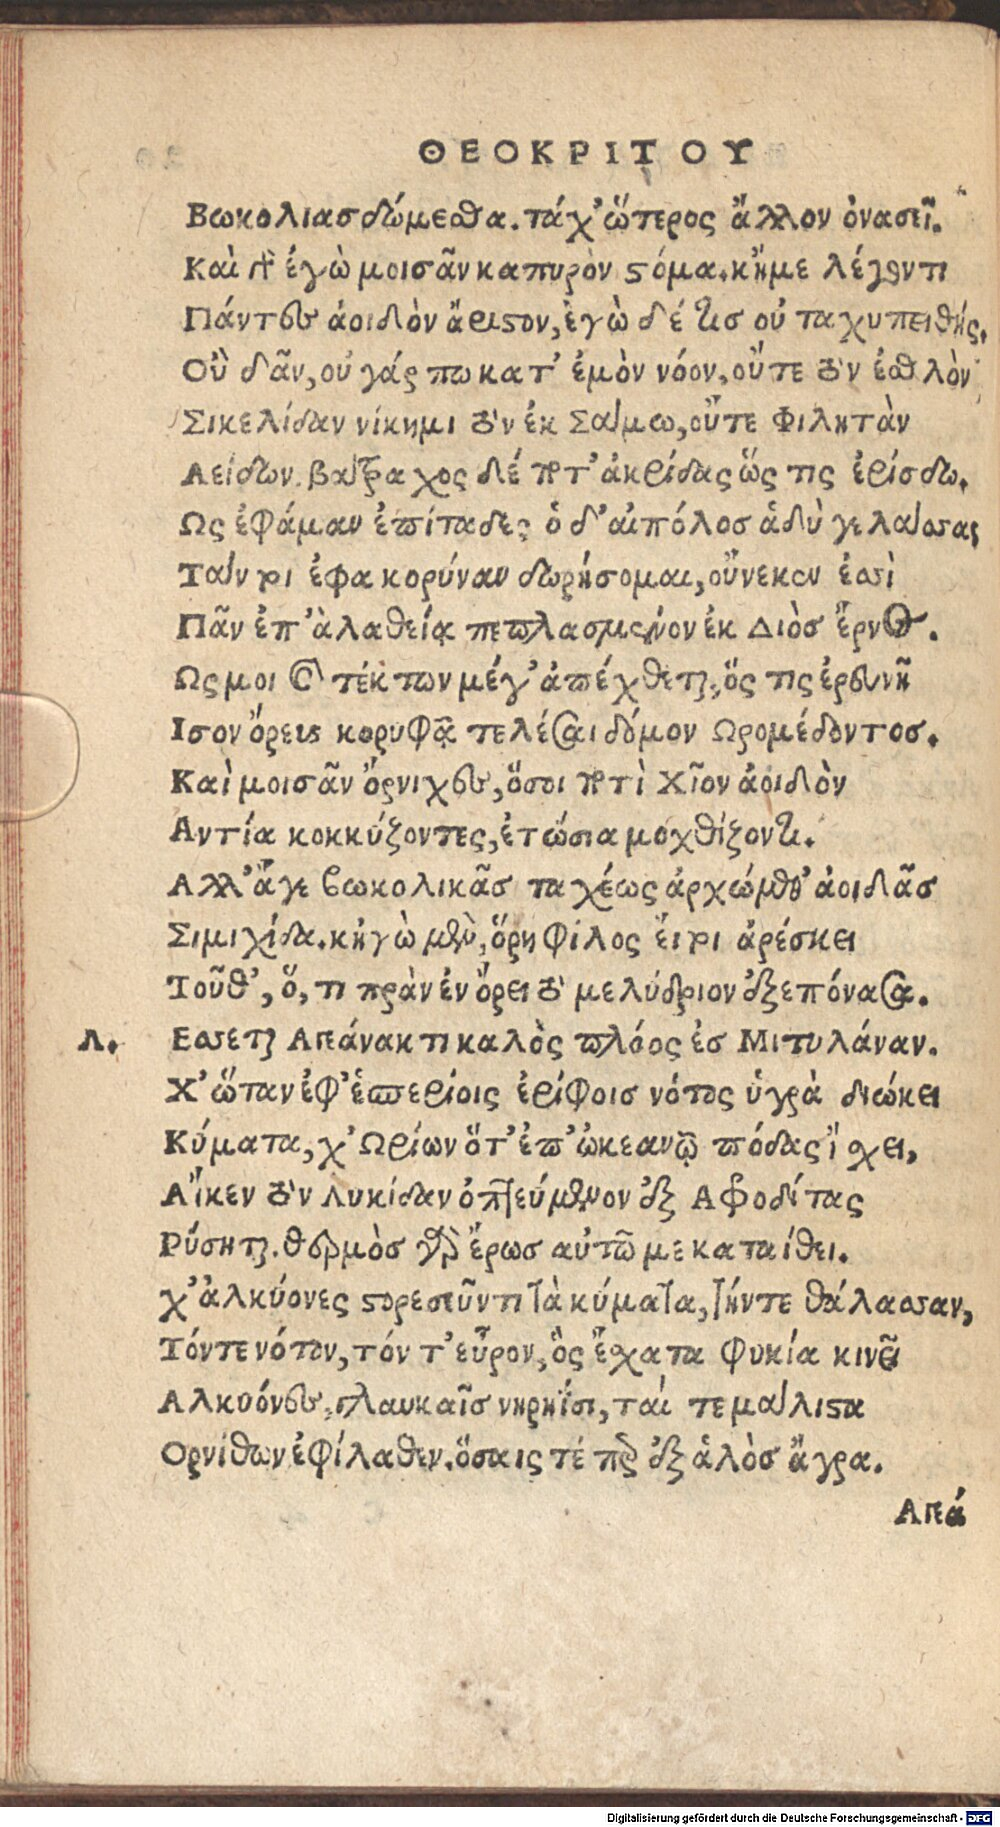 ΘΕΟΚΡΙΤΟΥ
Βωκολιασδώμεσθα. τάχ' ὥτερος ἄλλον ὀνασεῖ.
Καὶ γὰρ ἐγὼ μοισᾶν καπυρὸν στόμα. κἤμε λέγοντι
Πάντες ἀοιδὸν ἄριστον, ἐγὼ δέ τις οὐ ταχυπειθής.
Οὒ δᾶν, οὐ γάρ πω κατ' ἐμὸν νόον, οὔτε τὸν ἐσθλὸν
Σικελίδαν νίκημι τὸν ἐκ Σάμω, οὔτε Φιλητὰν
Αείδων. βάτραχος δέ ποτ' ἀκρίδας ὥς τις ἐρίσδω.
Ως ἐφάμαν ἐπίταδες ὁ δ' αἰπόλοσ ἁδὺ γελάσσας
Τάν τοι ἔφα κορύναν δωρήσομαι, οὕνεκεν ἐσσὶ
Πᾶν ἐπ' ἀλαθείᾳ πεπλασμένον ἐκ Διὸσ ἔρνος.
Ως μοι καὶ τέκτων μέγ' ἀπέχθεται, ὅς τις ἐρευνῆ
Ισον ὄρευς κορυφᾷ τελέσαι δόμον Ωρομέδοντοσ.
Καὶ μοισᾶν ὄρνιχες, ὅσοι ποτὶ Χῖον ἀοιδὸν
Αντία κοκκύζοντες, ἐτώσια μοχθίζοντι.
Αλλ' ἄγε βωκολικᾶσ ταχέως ἀρχώμεθ' ἀοιδᾶσ
Σιμιχίδα. κἠγὼ μὲν, ὅρη φίλος εἴ τοι ἀρέσκει
Τοῦθ', ὅ, τι πρὰν ἐν ὄρει τὸ μελύδριον ἐξεπόνασα.
Λ. Εσσεται Απάνακτι καλὸς πλόος ἐσ Μιτυλάναν.
Χ' ὥταν ἐφ' ἑσπερίοις ἐρίφοισ νότος ὑγρὰ διώκει
Κύματα, χ' Ωρίων ὅτ' ἐπ' ὠκεανῷ πόδας ἴσχει,
Αἴκεν τὸν Λυκίδαν ὀπτεύμενον ἐξ Αφροδίτας
Ρύσηται. θερμὸσ γὰρ ἔρωσ αὐτῶ με καταίθει.
χ' ἀλκύονες στορεσεῦντι τὰ κύματα, τήντε θάλασσαν,
Τόντε νότον, τόν τ' εὖρον, ὃς ἔσχατα φυκία κινεῖ
Αλκυόνες, γλαυκαῖσ νηρηΐσι, ταί τε μάλιστα
Ορνίθων ἐφίλαθεν. ὅσαις τέ περ ἐξ ἁλὸσ ἄγρα.
Απά
Digitalisierung gefördert durch die Deutsche Forschungsgemeinschaft - DFG